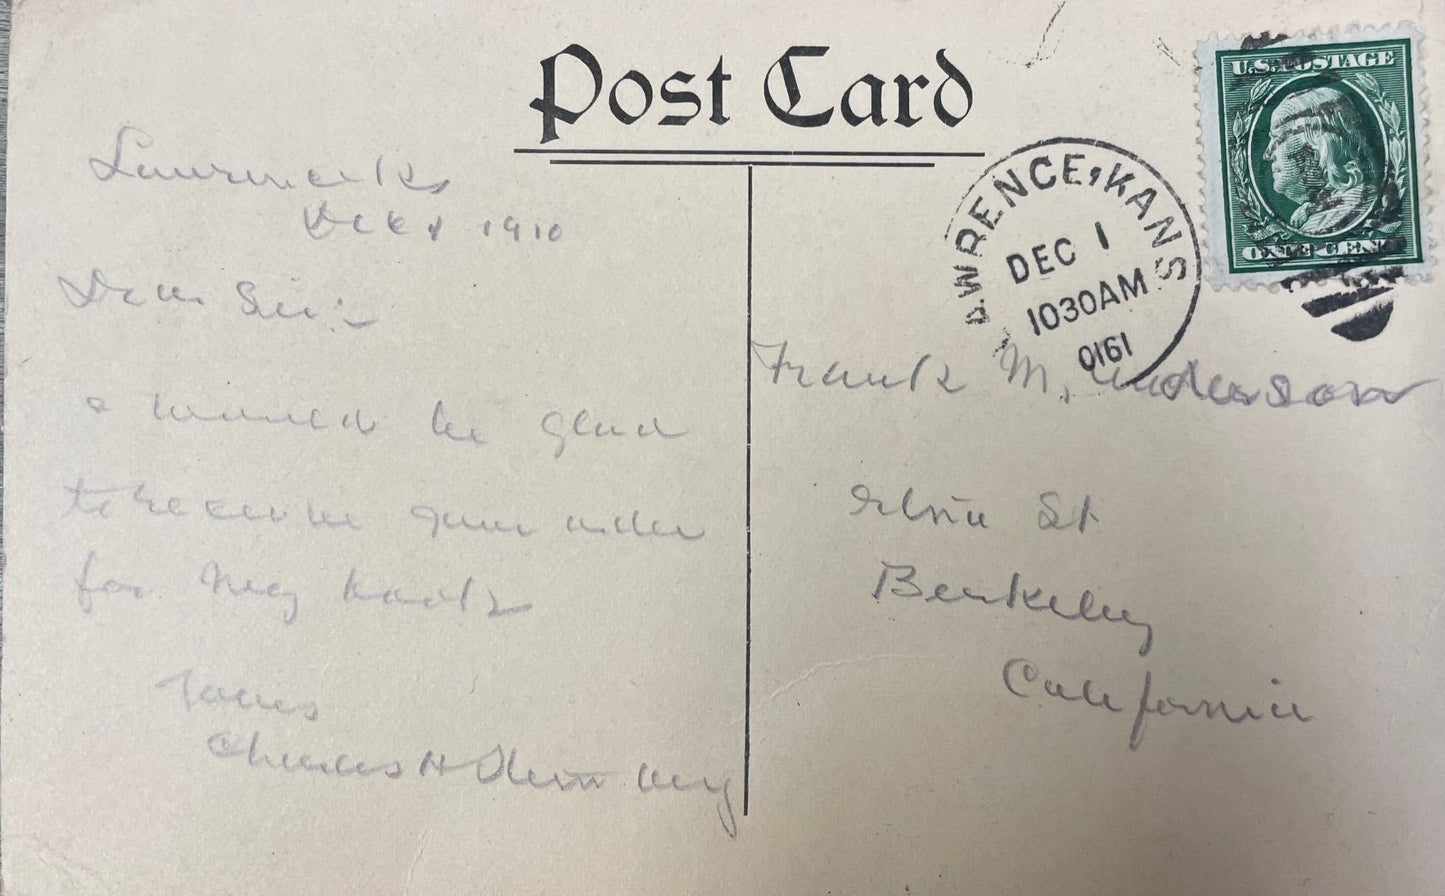 Post Card
U.S. POSTAGE
ONE CENT
LAWRENCE, KANS
DEC 1
1030AM
0161
Lawrence Ks
Dec 1 1910
Dear Sir:-
I would be glad
to receive your order
for my book
Yours
Charles H
Frank M. Anderson
St
Berkeley
California